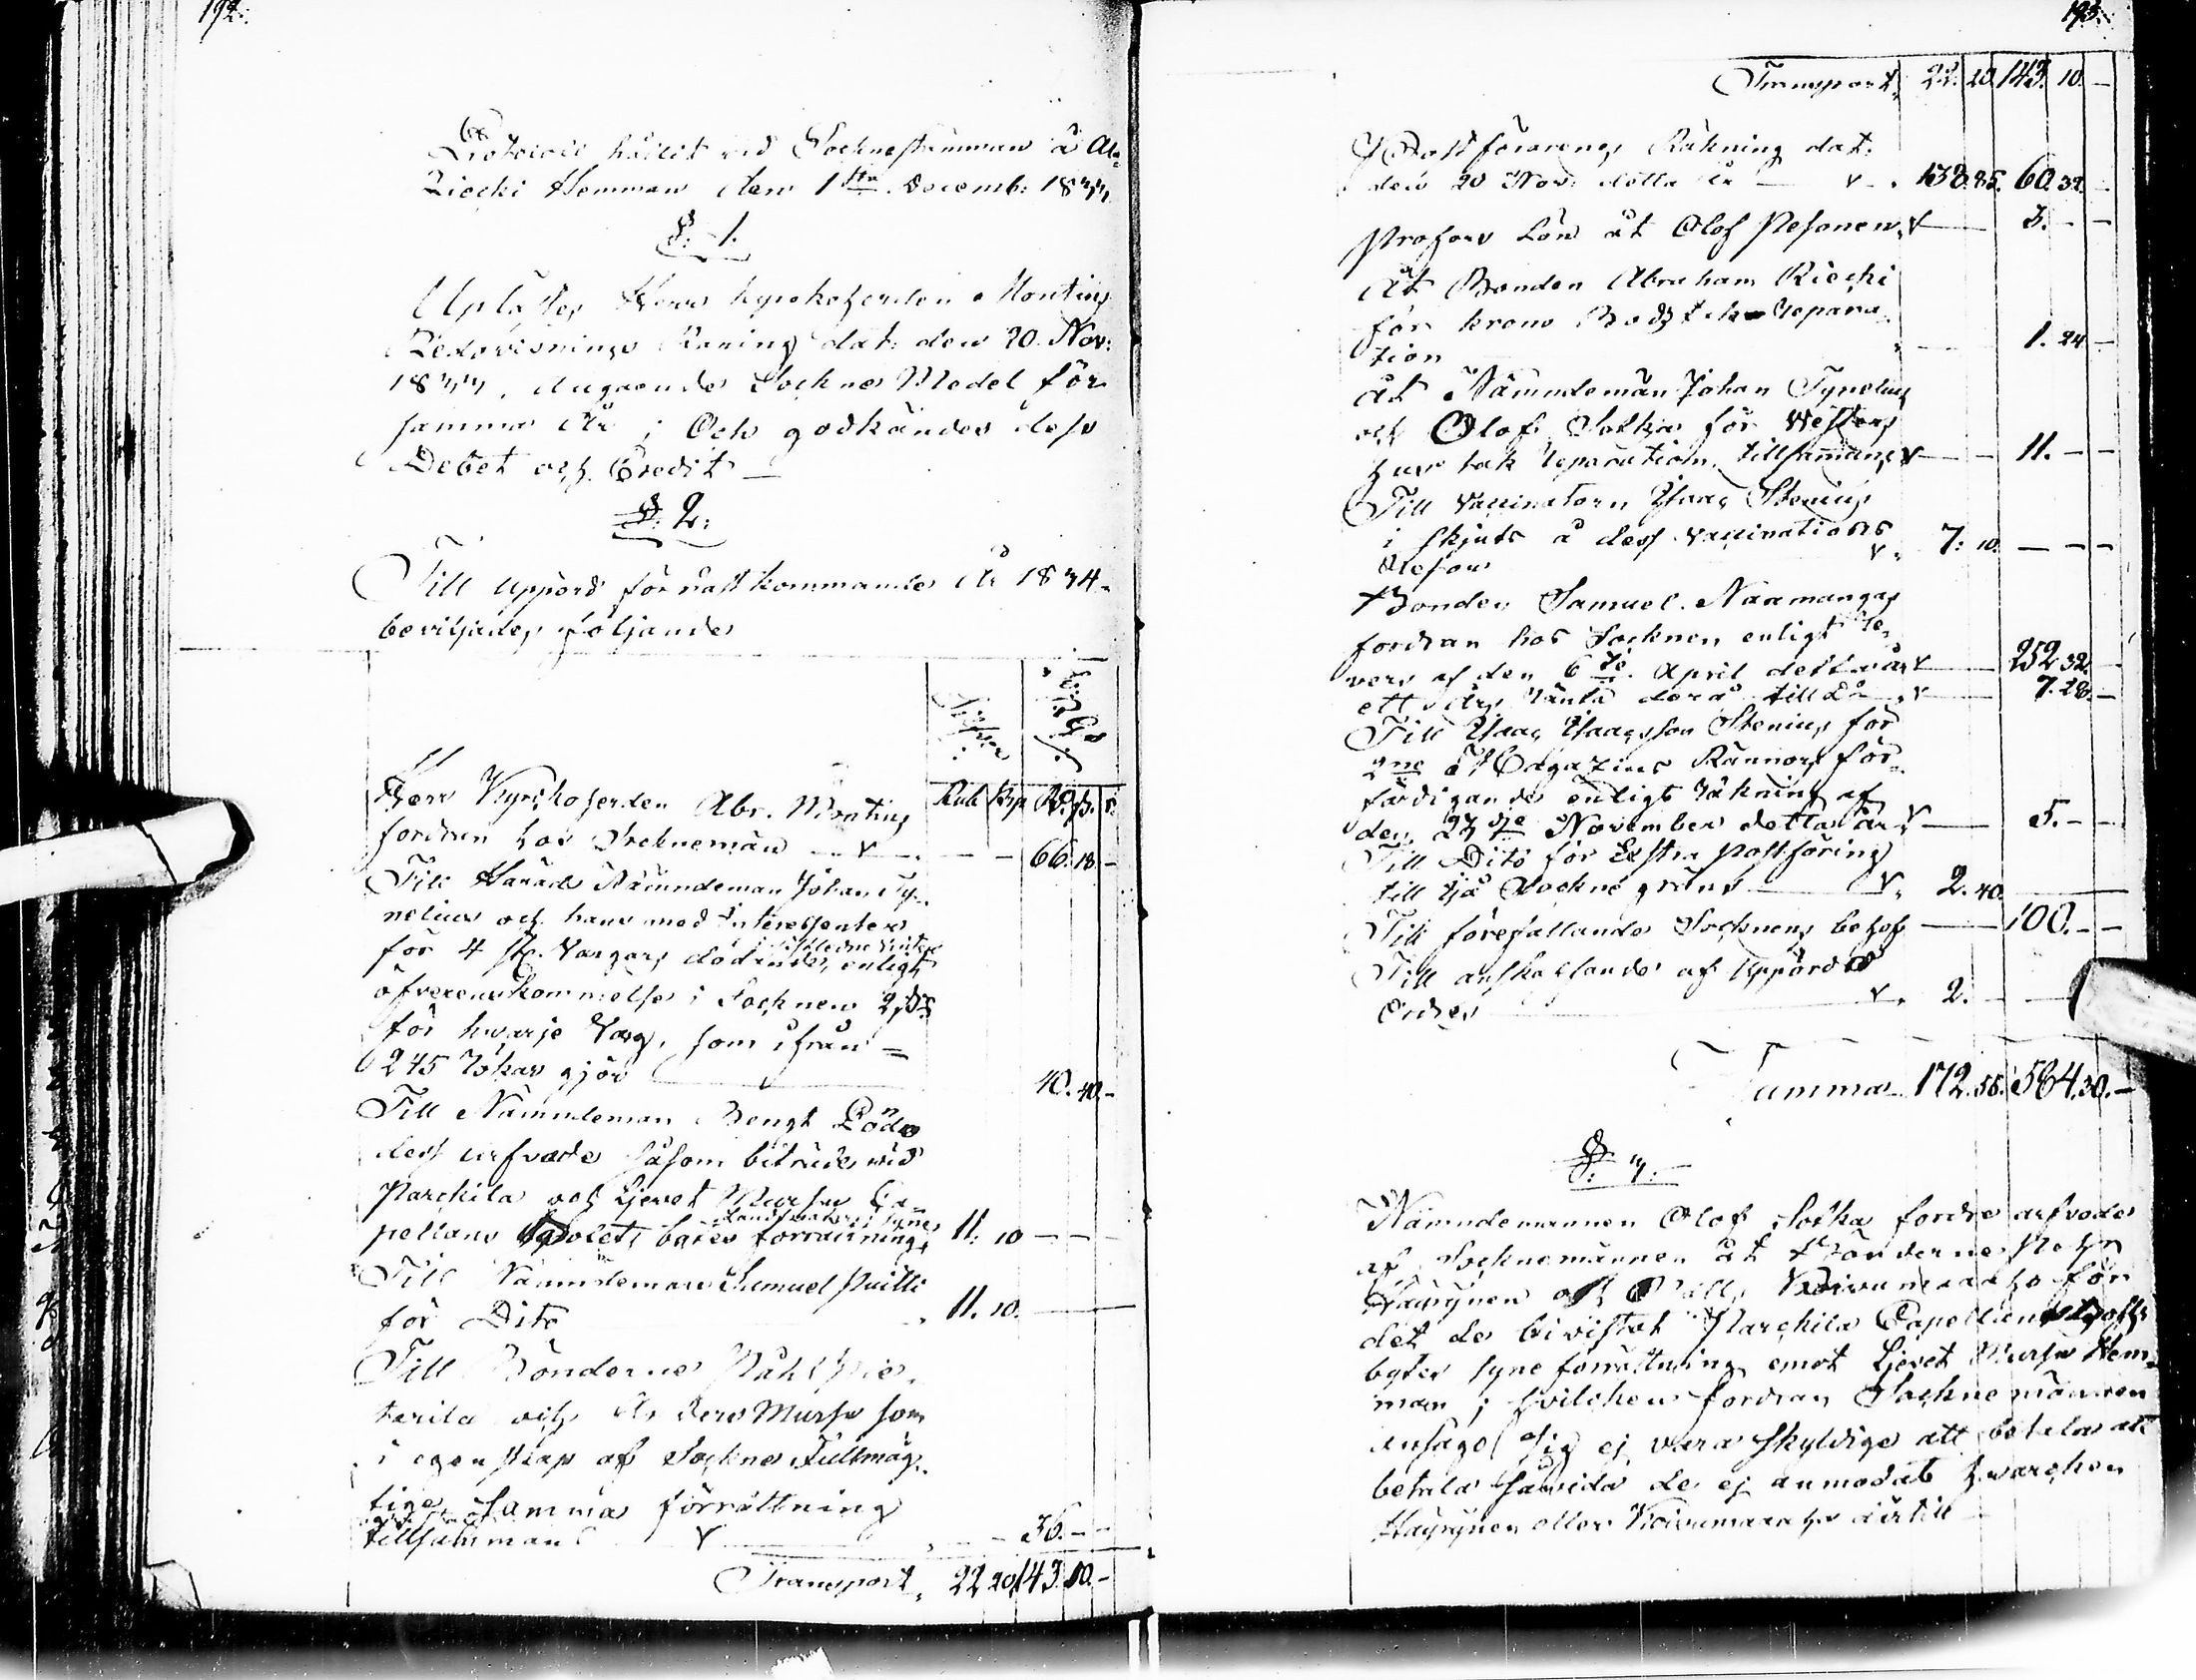 192.
Protocoll hållit vid Socknestämman å Ala
Riecki Hemman den 1sta Decemb: 1833
§: 1.
Uplästes Herr Kyrckoherden Montins
Redovisnings Räning dat: den 20. Nov:
1833, Angående Sockne Medel för
samma År; Och godkändes dess
Debet och Credit —
§: 2:
Till uppörd för nästkommande År 1834.
beviljades följande
Rub Kop Rd. s. r.
Herr Kyrckoherden Abr. Montins
fordran hos Socknemän — 66. 18. —
Till Härads Nämndeman Johan Ty-
nelius och hans med Interessenter
för 4 st. Vargars dödande, enligt
öfverenskommelse i Socknen 2 s
för hwarje Varg, som ifrån =
245 Rökar gjör — 40. 40. —
Till Nämndeman Bengt
dess arfvode såsom biträde vid
Parckila och Ljevet Murso Ca=
pellans bohles byten förrättning 11. 10 — —
Till Nämndeman Samuel Puilli
för Dito 11. 10. —
Till Bönderne Påhl Pie-
tarila och Anders Murso som
i egenskap af Sockne Fullmäg-
tige samma förrättning
tillsamman — 36. — —
Transport, 22 20 143. 10. —
193.
Transport, 22. 20. 143. 10. —
Postförarens Räkning dat:
den 20 Nov: detta År — 138. 85. 60. 32. —
Profoss Lön åt Olof Pesonen — 3. — —
Åt Bonden Abraham Riecki
för krono repara-
tion 1. 24 —
Åt Nämndemän Johan Tynelius
och Olof Sotka för
hus tak reparation, tillsammans — 11. — —
Till Vaccinatorn Isaac Stenius
i skjuts å dess Vaccinations
Resor 7: 10. — — —
Bonden Samuel Naamangas
fordran hos Socknen, enligt re-
vers af den 6te April detta år — 252 32. —
ett års ränta derå till Do — 7. 28. —
Till Isaac Isaacsson Stenius för
2ne Magazins Rännors för-
färdigande enligt räkning af
den 23dje November detta år — 5. — —
Till Dito för Extra postföring
till Sockne gräns — 2. 40.
Till förefallande Socknens behof — 100. — —
Till anskaffande af Uppörd
— 2. — —
Summa 172. 55. 584. 30. —
§: 3. —
Nämndemannen Olof Sotka fordre arfvode
af Socknemännen åt Bönderne
och Påll Koivumaa för
det de bivistat Parckila Capellans
byten syne förrättning emot Ljevet Murso Hem-
man; hvilcken fordran Socknemännen
ansågo sig ej vara skyldige att betala att
betala såvida de ej anmodat hvarcken
eller Koivumaa härtill